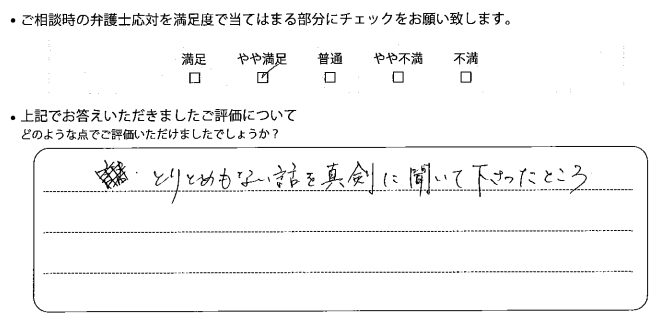 • ご相談時の弁護士応対を満足度で当てはまる部分にチェックをお願い致します。
満足 やや満足 普通 やや不満 不満
□ ☑ □ □ □
• 上記でお答えいただきましたご評価について
どのような点でご評価いただけましたでしょうか？
とりとめもない話を真剣に聞いて下さったところ